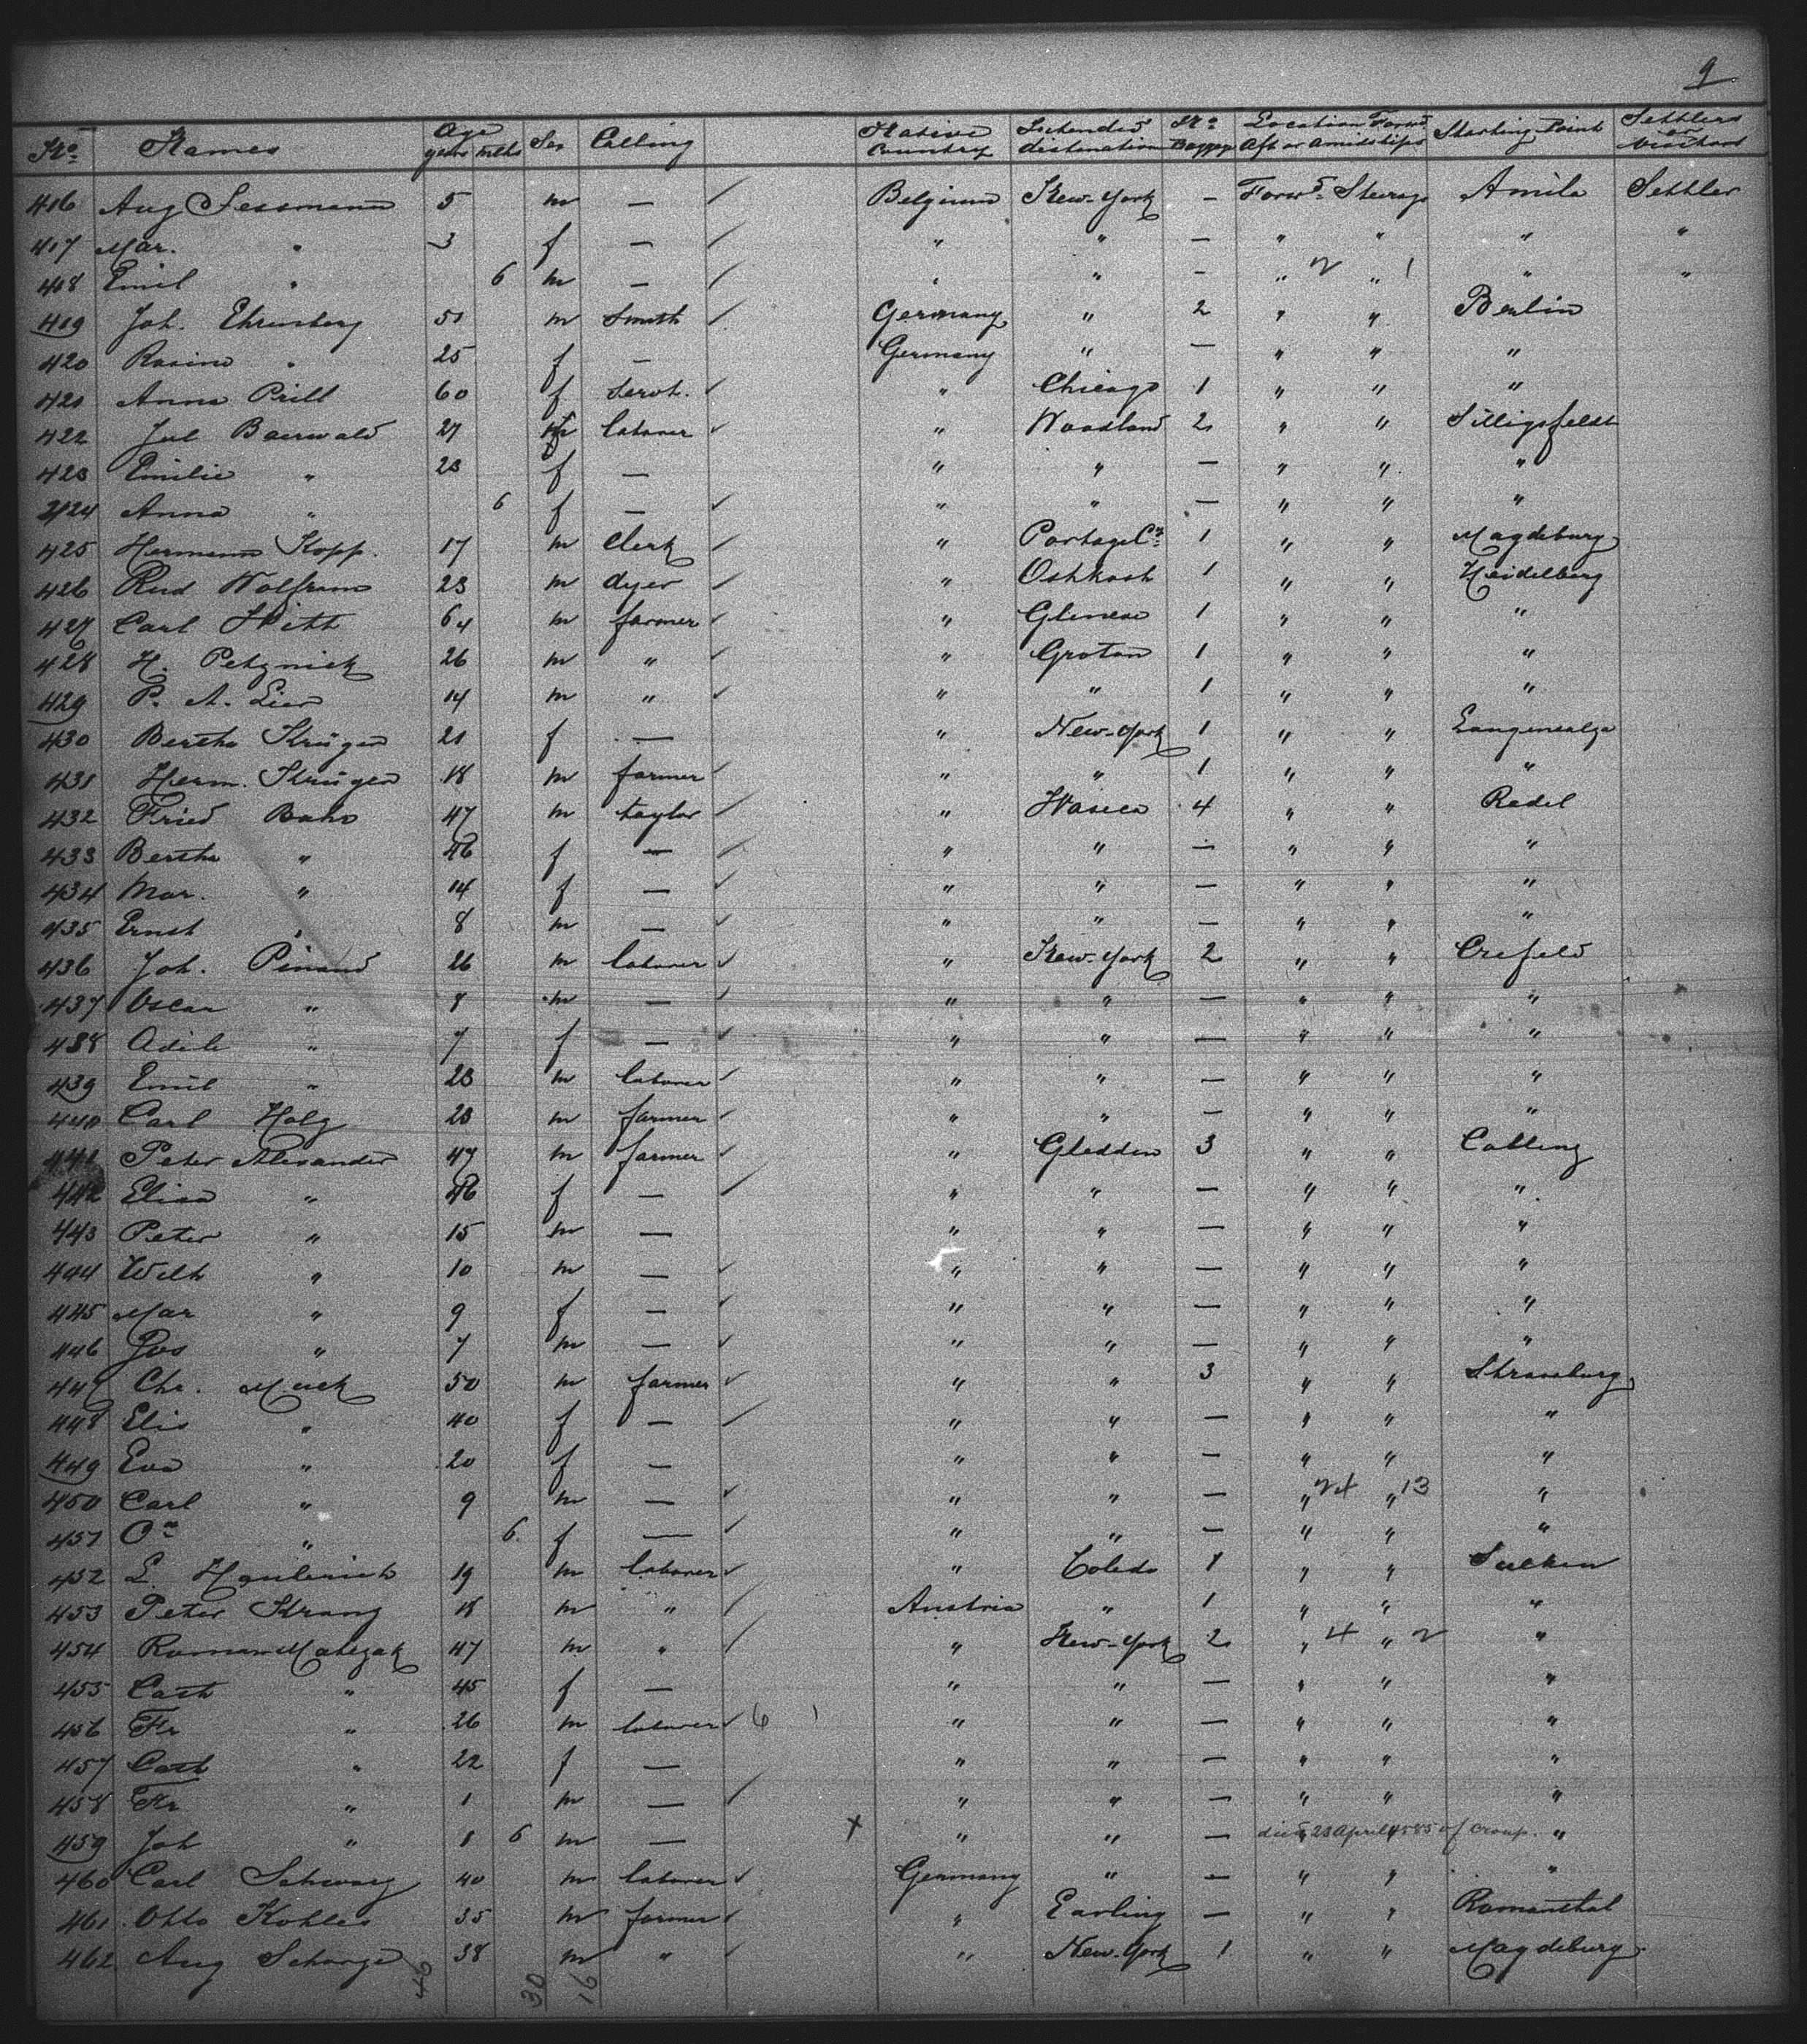 9
No. Names Age years mths Sex Calling Native Country Intended distenation No. Baggage Location Forwd Aft or Amidships Starting Point Settlers or Visitors
416 Aug Sessmann 5 m — Belgium New-York — Forwd Steerage Settler
417 Mar. " 3 f — " " — " " " "
408 Emil " 6 m — " " — " 2 " 1 " "
419 Joh. Ehrensberg 51 m Smith Germany " 2 " " Berlin
420 Rosine " 25 f — Germany " — " " "
421 Anna Prill 60 f Servt. " Chicago 1 " " "
422 Jul Baerwald 27 laborer " Woodland 2 " " Silligsfeldt
423 Emilie " 23 f — " " — " " "
424 Anna " 6 f — " " — " " "
425 Hermann Kopp. 17 m Clerk " Portage Co. 1 " " Magdeburg
426 Rud Wolfram 23 m dyer " Oshkosh 1 " " Heidelberg
427 Carl Witt 64 m farmer " 1 " " "
428 H. Petznick 26 m " " Groton 1 " " "
429 P. A. Lier 14 m " " " 1 " " "
430 Bertha Krüger 21 f — " New-York 1 " " Langensalza
431 Herm. Krüger 18 m farmer " " 1 " " "
432 Fried Bahr 47 m taylor " Waseca 4 " " Redel
433 Bertha " 46 f — " " — " " "
434 Mar. " 14 f — " " — " " "
435 Ernst " 8 m — " " — " " "
436 Joh. Pinand 26 m laborer " New-York 2 " " Crefeld
437 Oscar " 8 m — " " — " " "
438 Adele " 7 f — " " — " " "
439 Emil " 23 m laborer " " — " " "
440 Carl Holz 23 m farmer " " — " " "
441 Peter Alexander 47 m farmer " Gledden 3 " " Coblenz
442 Elisa " 46 f — " " — " " "
443 Peter " 15 m — " " — " " "
444 Wilh " 10 m — " " — " " "
445 Mar " 9 f — " " — " " "
446 Jos " 7 m — " " — " " "
447 Chr. Muck 50 m farmer " " 3 " " Strassburg
448 Elis " 40 f — " " — " " "
449 Eva " 20 f — " " — " " "
450 Carl " 9 m — " " — " 24 " 13 "
451 " 6 f — " " — " " "
452 L. 19 m laborer " Toledo 1 " "
453 Peter Strang 18 m " Austria " 1 " " "
454 Roman Matezak 47 m " " New-York 2 " 4 " 2 "
455 Cath " 45 f — " " — " " "
456 Fr " 26 m laborer 6 1 " " — " " "
457 Cath " 22 f — " " — " " "
458 Fr " 1 m — " " — " " "
459 Joh " 1 6 m — X " " — died 23 April 1885 of Croup. "
460 Carl Schwarz 40 m laborer Germany " — " " "
461 Otto Kohler 35 m farmer " Earling — " " Romanthal
462 Aug Schorge 38 m " " New-York 1 " " Magdeburg
46 30 16